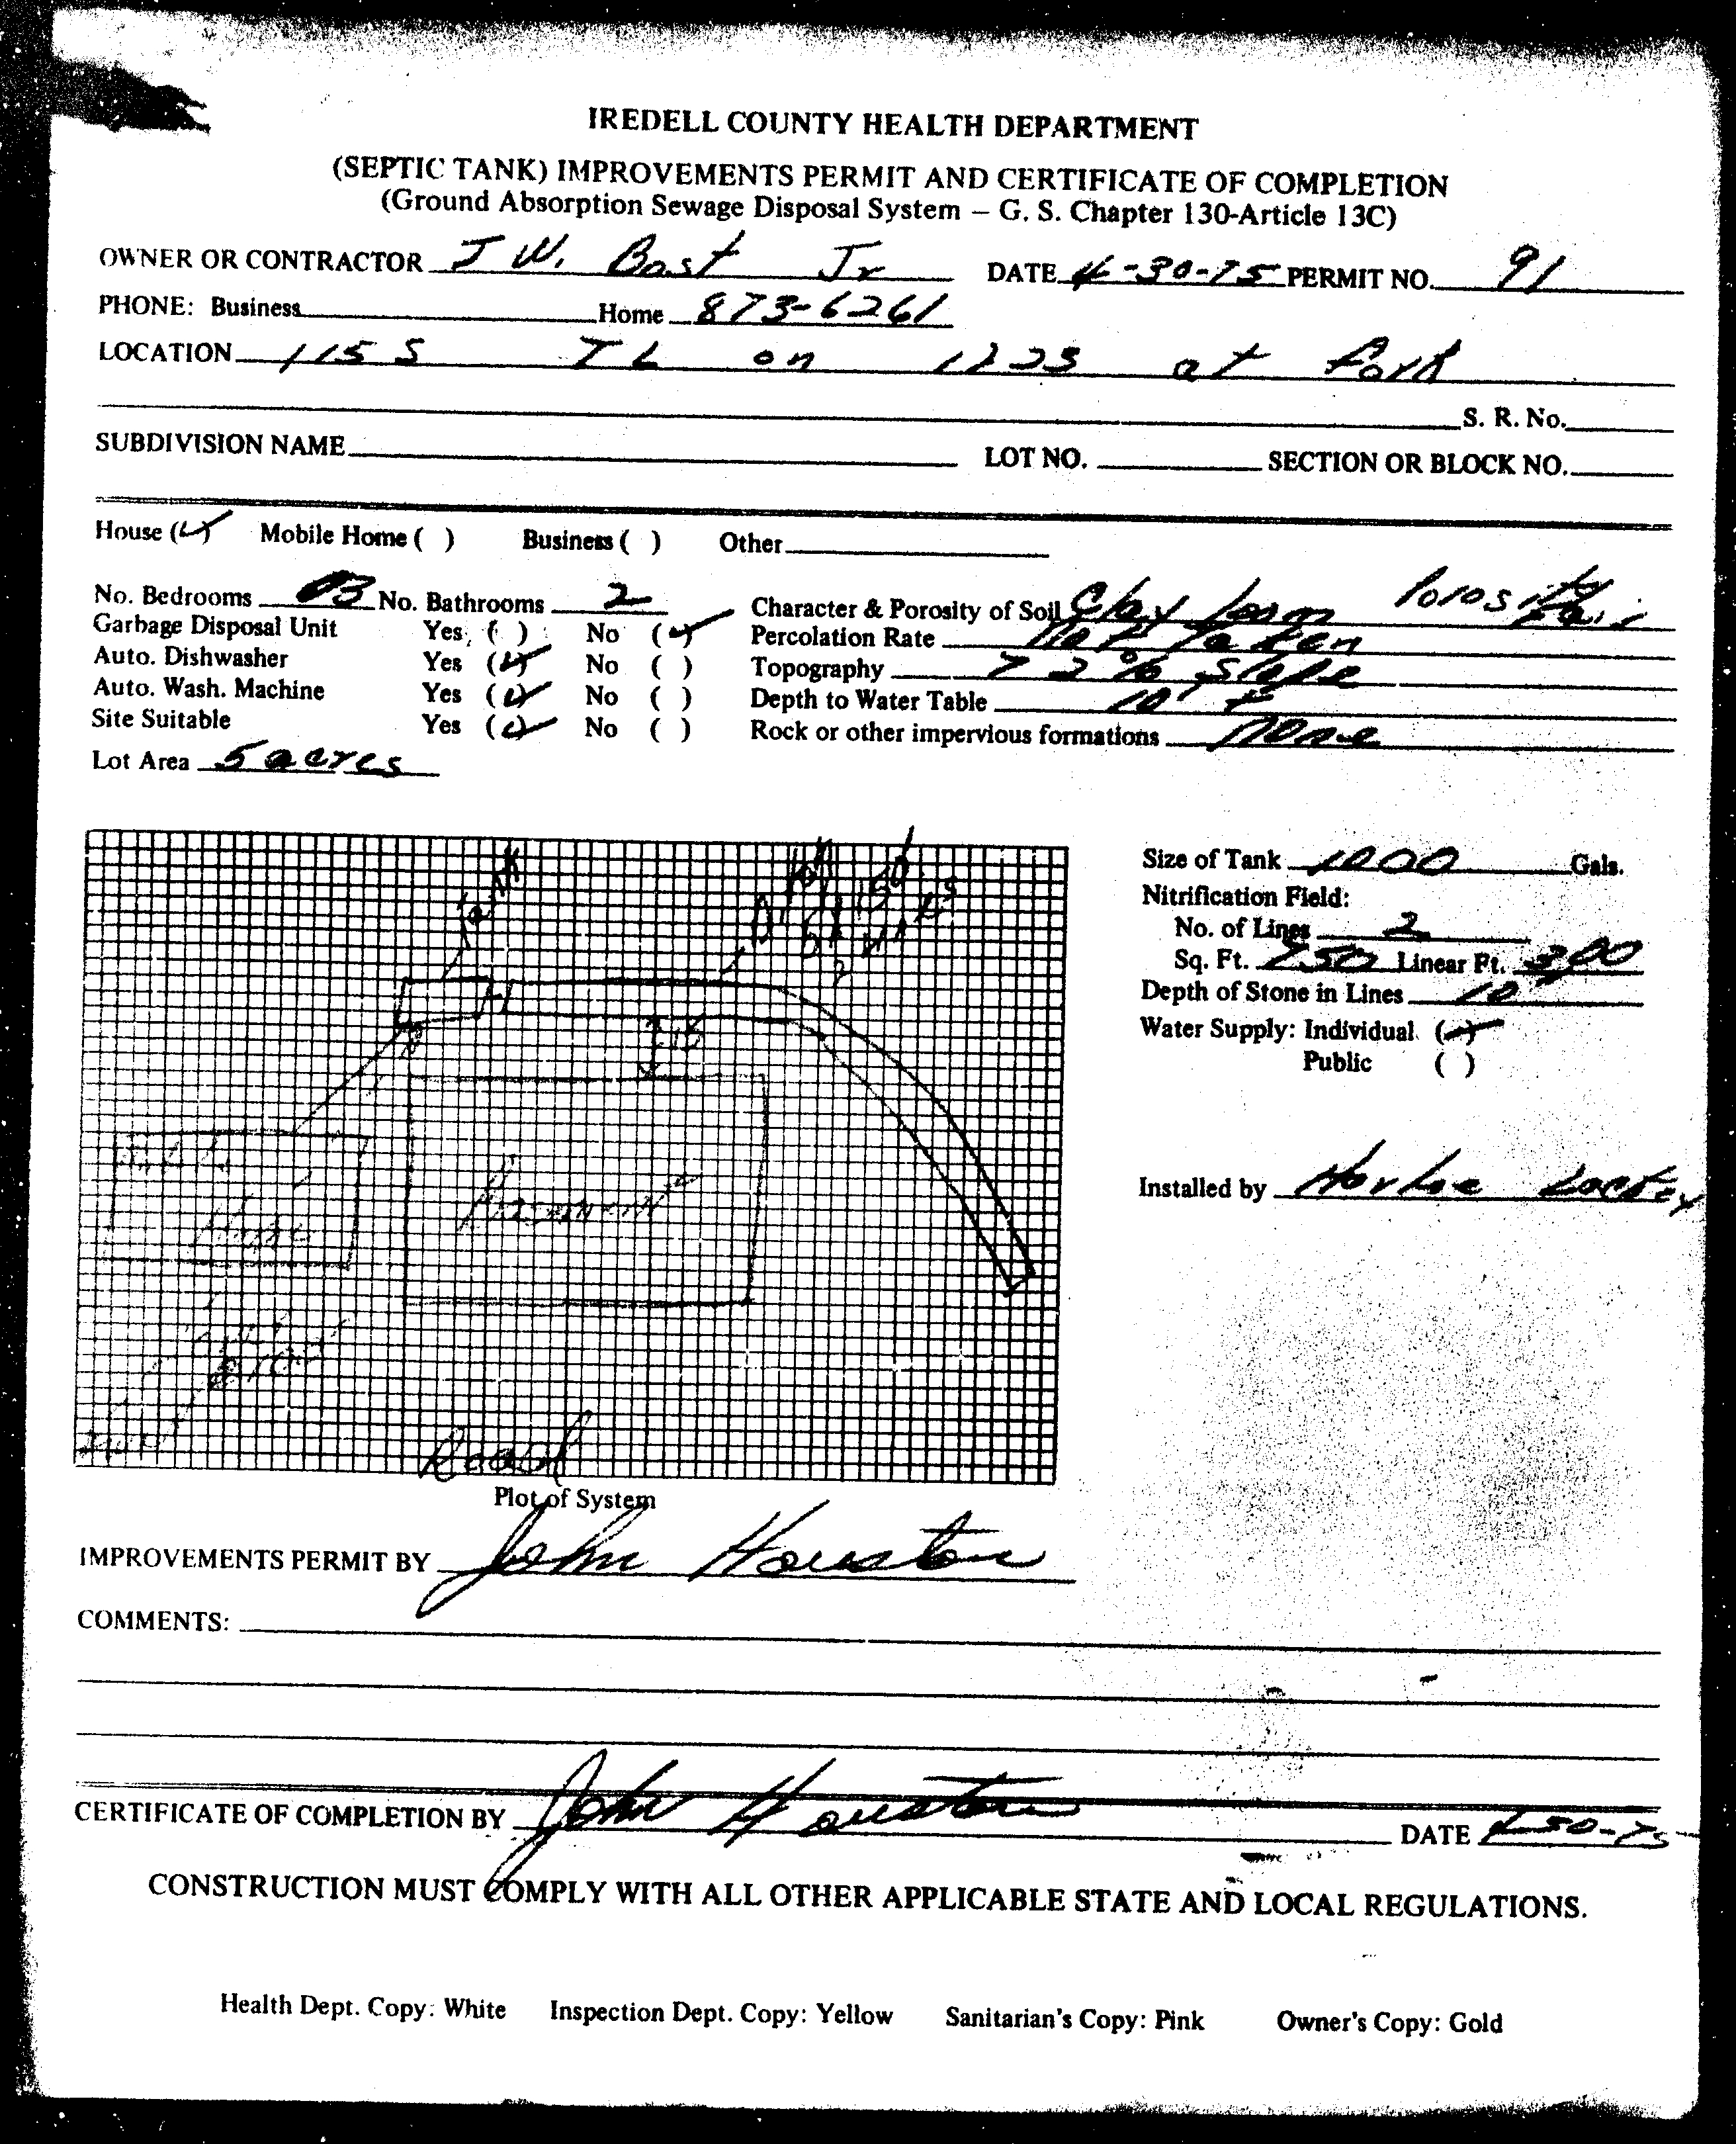 IREDELL COUNTY HEALTH DEPARTMENT
(SEPTIC TANK) IMPROVEMENTS PERMIT AND CERTIFICATE OF COMPLETION
(Ground Absorption Sewage Disposal System – G. S. Chapter 130-Article 13C)
OWNER OR CONTRACTOR J W. Bost Jr DATE 4-30-75 PERMIT NO. 91
PHONE: Business Home 873-6261
LOCATION 115 S T L on at fork
S. R. No.
SUBDIVISION NAME LOT NO. SECTION OR BLOCK NO.
House (✓) Mobile Home ( ) Business ( ) Other
No. Bedrooms 3 No. Bathrooms 2 Character & Porosity of Soil Clay loam Porosity Fair
Garbage Disposal Unit Yes ( ) No (✓) Percolation Rate Not Taken
Auto. Dishwasher Yes (✓) No ( ) Topography 7 2% Slope
Auto. Wash. Machine Yes (✓) No ( ) Depth to Water Table 10' +
Site Suitable Yes (✓) No ( ) Rock or other impervious formations none
Lot Area 5 acres
Size of Tank 1000 Gals.
Nitrification Field:
No. of Lines 2
Sq. Ft. 750 Linear Ft. 300
Depth of Stone in Lines 10"
Water Supply: Individual (✓)
Public ( )
Installed by Lackey
Tank
150'
2 lines
15
House
Basement
Road
Plot of System
IMPROVEMENTS PERMIT BY John Houston
COMMENTS:
CERTIFICATE OF COMPLETION BY John Houston DATE 4-30-75
CONSTRUCTION MUST COMPLY WITH ALL OTHER APPLICABLE STATE AND LOCAL REGULATIONS.
Health Dept. Copy: White Inspection Dept. Copy: Yellow Sanitarian's Copy: Pink Owner's Copy: Gold